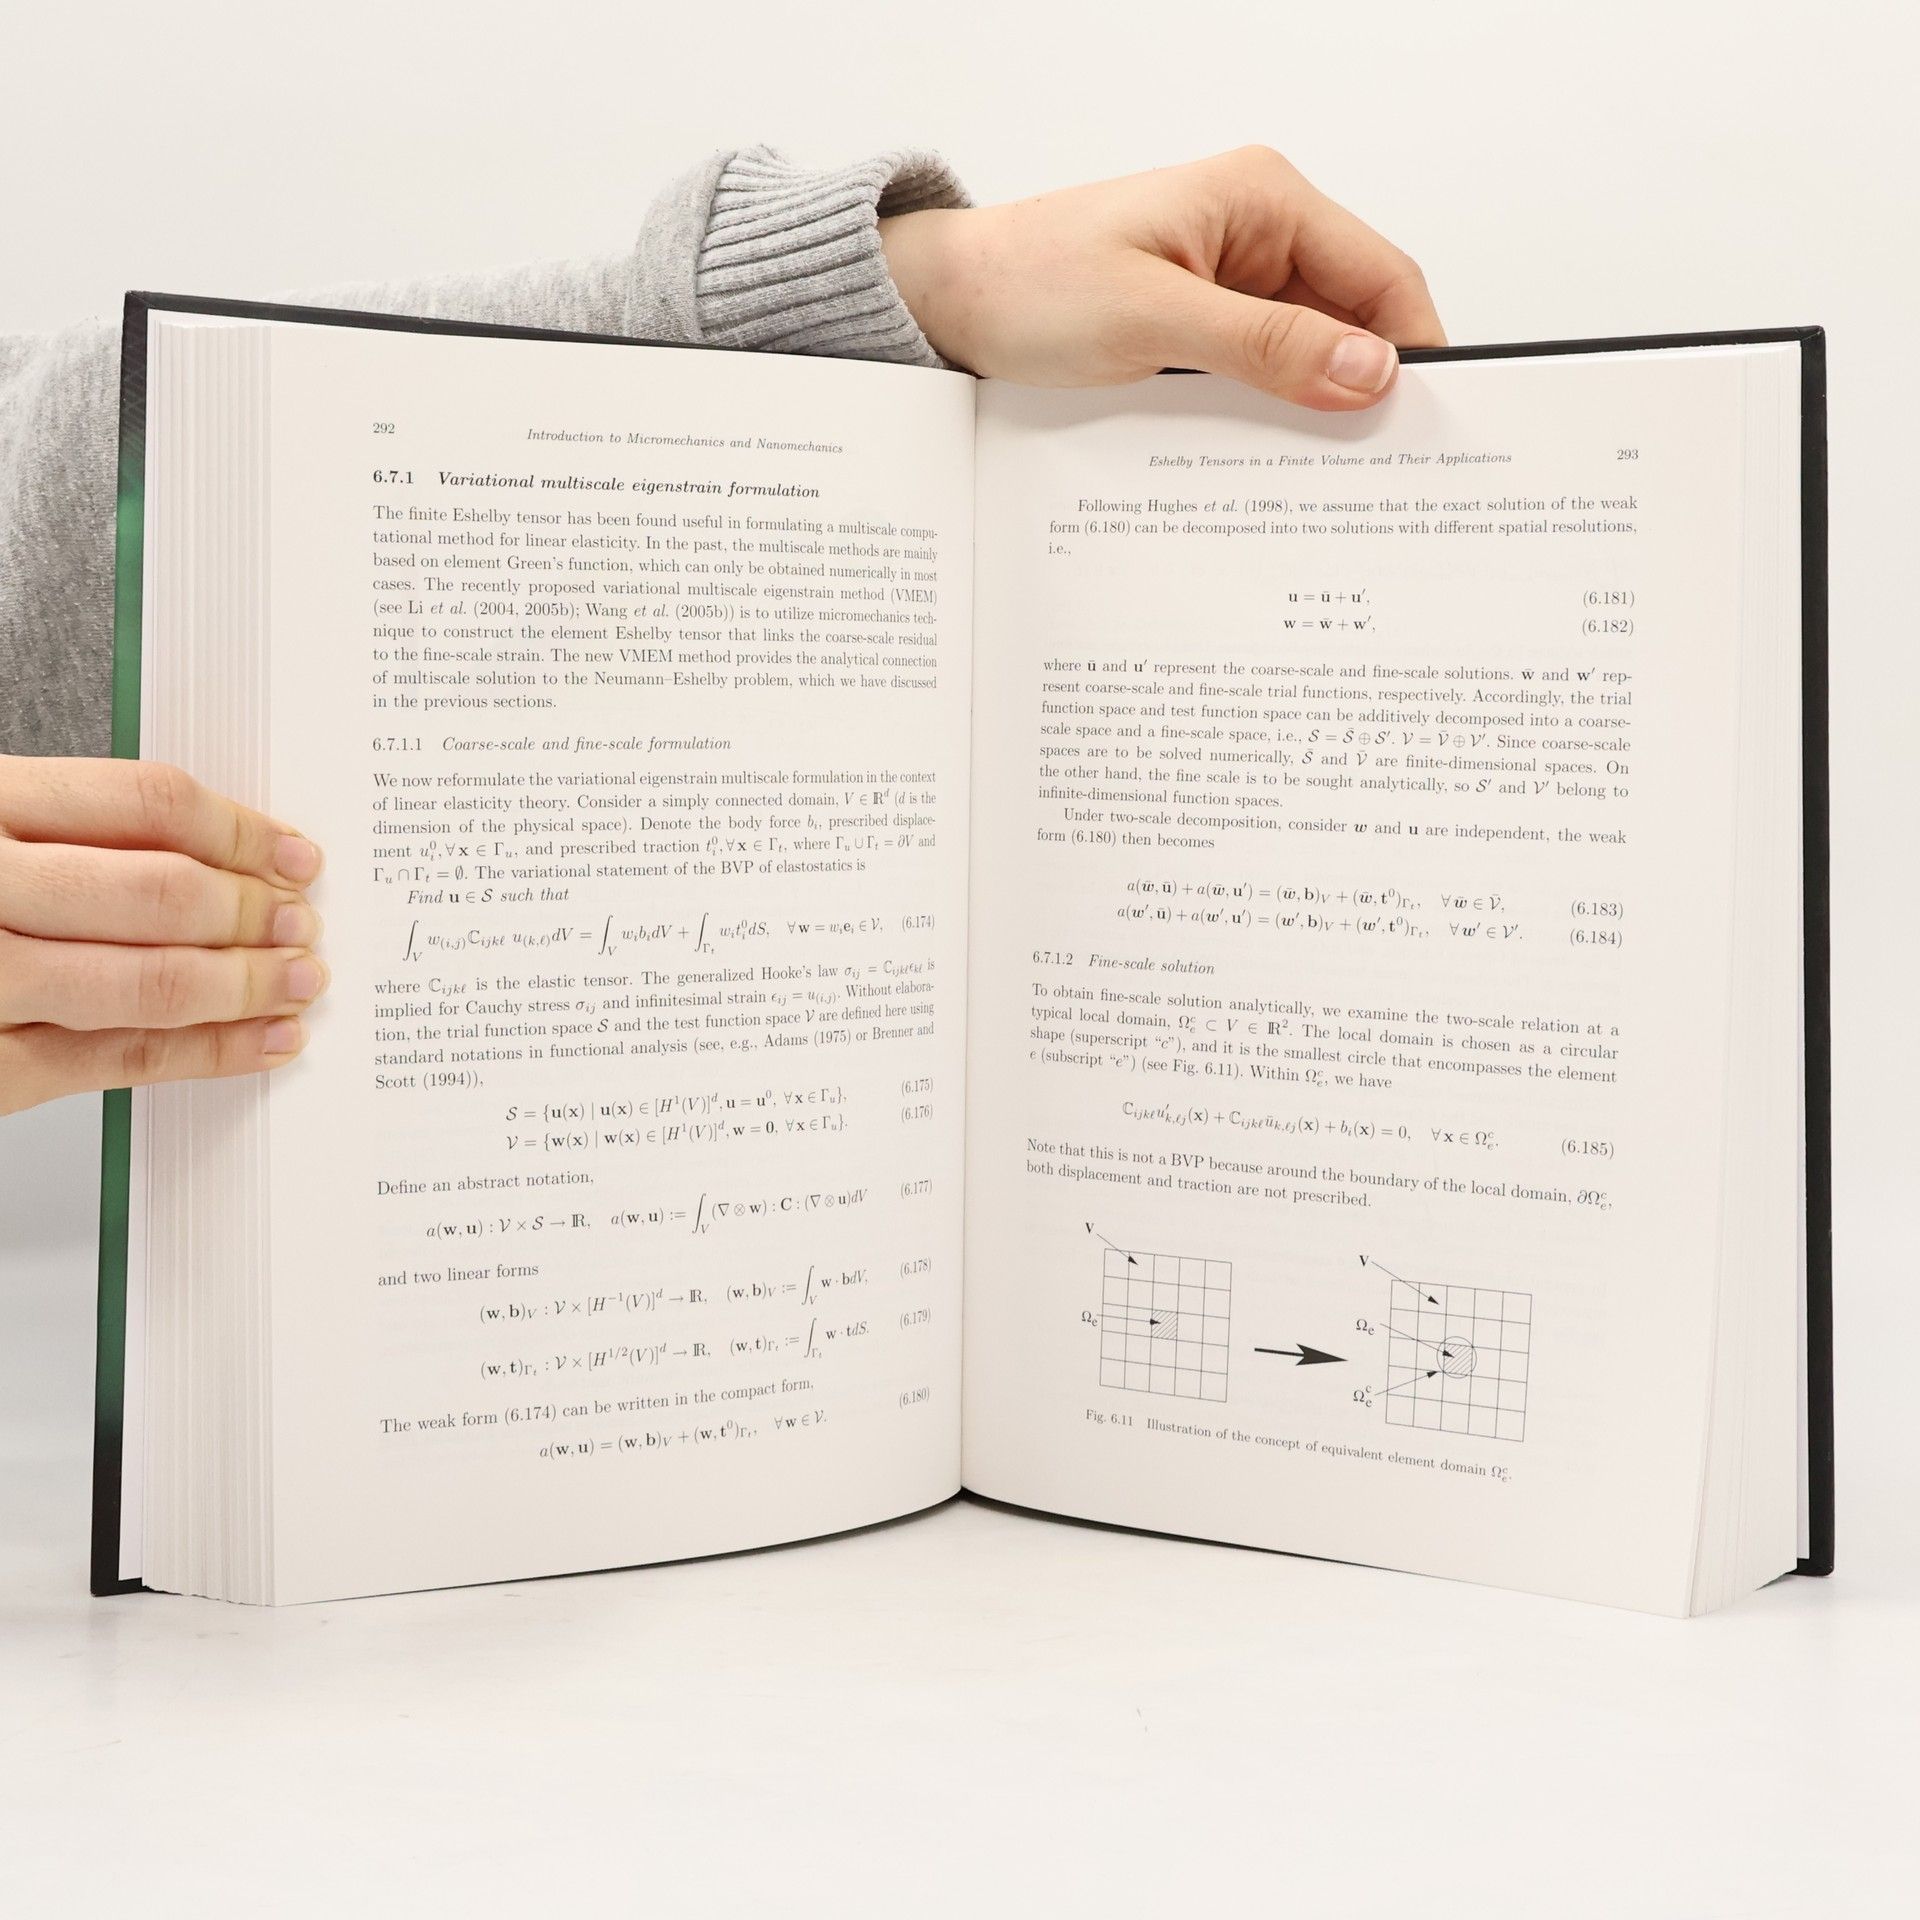 292
Introduction to Micromechanics and Nanomechanics
6.7.1 Variational multiscale eigenstrain formulation
The finite Eshelby tensor has been found useful in formulating a multiscale compu-
tational method for linear elasticity. In the past, the multiscale methods are mainly
based on element Green's function, which can only be obtained numerically in most
cases. The recently proposed variational multiscale eigenstrain method (VMEM)
(see Li et al. (2004, 2005b); Wang et al. (2005b)) is to utilize micromechanics tech-
nique to construct the element Eshelby tensor that links the coarse-scale residual
to the fine-scale strain. The new VMEM method provides the analytical connection
of multiscale solution to the Neumann–Eshelby problem, which we have discussed
in the previous sections.
6.7.1.1 Coarse-scale and fine-scale formulation
We now reformulate the variational eigenstrain multiscale formulation in the context
of linear elasticity theory. Consider a simply connected domain, V ∈ ℝᵈ (d is the
dimension of the physical space). Denote the body force bᵢ, prescribed displace-
ment uᵢ⁰, ∀x ∈ Γᵤ, and prescribed traction tᵢ⁰, ∀x ∈ Γₜ, where Γᵤ ∪ Γₜ = ∂V and
Γᵤ ∩ Γₜ = ∅. The variational statement of the BVP of elastostatics is
Find u ∈ 𝒮 such that
∫_V w_(i,j) ℂ_ijkℓ u_(k,ℓ) dV = ∫_V wᵢbᵢdV + ∫_Γₜ wᵢtᵢ⁰dS, ∀w = wᵢeᵢ ∈ 𝒱, (6.174)
where ℂ_ijkℓ is the elastic tensor. The generalized Hooke's law σ_ij = ℂ_ijkℓ ϵ_kℓ is
implied for Cauchy stress σ_ij and infinitesimal strain ϵ_ij = u_(i,j). Without elabora-
tion, the trial function space 𝒮 and the test function space 𝒱 are defined here using
standard notations in functional analysis (see, e.g., Adams (1975) or Brenner and
Scott (1994)),
𝒮 = {u(x) | u(x) ∈ [H¹(V)]ᵈ, u = u⁰, ∀x ∈ Γᵤ}, (6.175)
𝒱 = {w(x) | w(x) ∈ [H¹(V)]ᵈ, w = 0, ∀x ∈ Γᵤ}. (6.176)
Define an abstract notation,
a(w, u) : 𝒱 × 𝒮 → ℝ, a(w, u) := ∫_V (∇ ⊗ w) : C : (∇ ⊗ u)dV (6.177)
and two linear forms
(w, b)_V : 𝒱 × [H⁻¹(V)]ᵈ → ℝ, (w, b)_V := ∫_V w · bdV, (6.178)
(w, t)_Γₜ : 𝒱 × [H^1/2(V)]ᵈ → ℝ, (w, t)_Γₜ := ∫_Γₜ w · tdS. (6.179)
The weak form (6.174) can be written in the compact form,
a(w, u) = (w, b)_V + (w, t⁰)_Γₜ, ∀w ∈ 𝒱. (6.180)
Eshelby Tensors in a Finite Volume and Their Applications
293
Following Hughes et al. (1998), we assume that the exact solution of the weak
form (6.180) can be decomposed into two solutions with different spatial resolutions,
i.e.,
u = ū + u′, (6.181)
w = w̄ + w′, (6.182)
where ū and u′ represent the coarse-scale and fine-scale solutions. w̄ and w′ rep-
resent coarse-scale and fine-scale trial functions, respectively. Accordingly, the trial
function space and test function space can be additively decomposed into a coarse-
scale space and a fine-scale space, i.e., 𝒮 = 𝒮̄ ⊕ 𝒮′. 𝒱 = 𝒱̄ ⊕ 𝒱′. Since coarse-scale
spaces are to be solved numerically, 𝒮̄ and 𝒱̄ are finite-dimensional spaces. On
the other hand, the fine scale is to be sought analytically, so 𝒮′ and 𝒱′ belong to
infinite-dimensional function spaces.
Under two-scale decomposition, consider w and u are independent, the weak
form (6.180) then becomes
a(w̄, ū) + a(w̄, u′) = (w̄, b)_V + (w̄, t⁰)_Γₜ, ∀w̄ ∈ 𝒱̄, (6.183)
a(w′, ū) + a(w′, u′) = (w′, b)_V + (w′, t⁰)_Γₜ, ∀w′ ∈ 𝒱′. (6.184)
6.7.1.2 Fine-scale solution
To obtain fine-scale solution analytically, we examine the two-scale relation at a
typical local domain, Ωₑᶜ ⊂ V ∈ ℝ². The local domain is chosen as a circular
shape (superscript “c”), and it is the smallest circle that encompasses the element
e (subscript “e”) (see Fig. 6.11). Within Ωₑᶜ, we have
ℂ_ijkℓ u′_k,ℓj(x) + ℂ_ijkℓ ū_k,ℓj(x) + bᵢ(x) = 0, ∀x ∈ Ωₑᶜ. (6.185)
Note that this is not a BVP because around the boundary of the local domain, ∂Ωₑᶜ,
both displacement and traction are not prescribed.
V
Ωₑ
V
Ωₑ
Ωₑᶜ
Fig. 6.11 Illustration of the concept of equivalent element domain Ωₑᶜ.